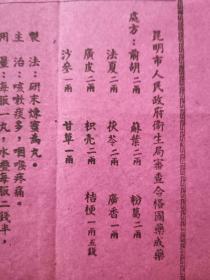 昆明市人民政府衛生局審查合格國藥成藥
處方：前胡二兩 蘇葉二兩 粉葛二兩
法夏二兩 茯苓二兩 廣香一兩
廣皮二兩 枳壳二兩 桔梗一兩五錢
沙參一兩 甘草一兩
製法：研末煉蜜為丸。
主治：咳嗽痰多，咽喉疼痛。
用量：每服一丸，水叠每服二錢半，